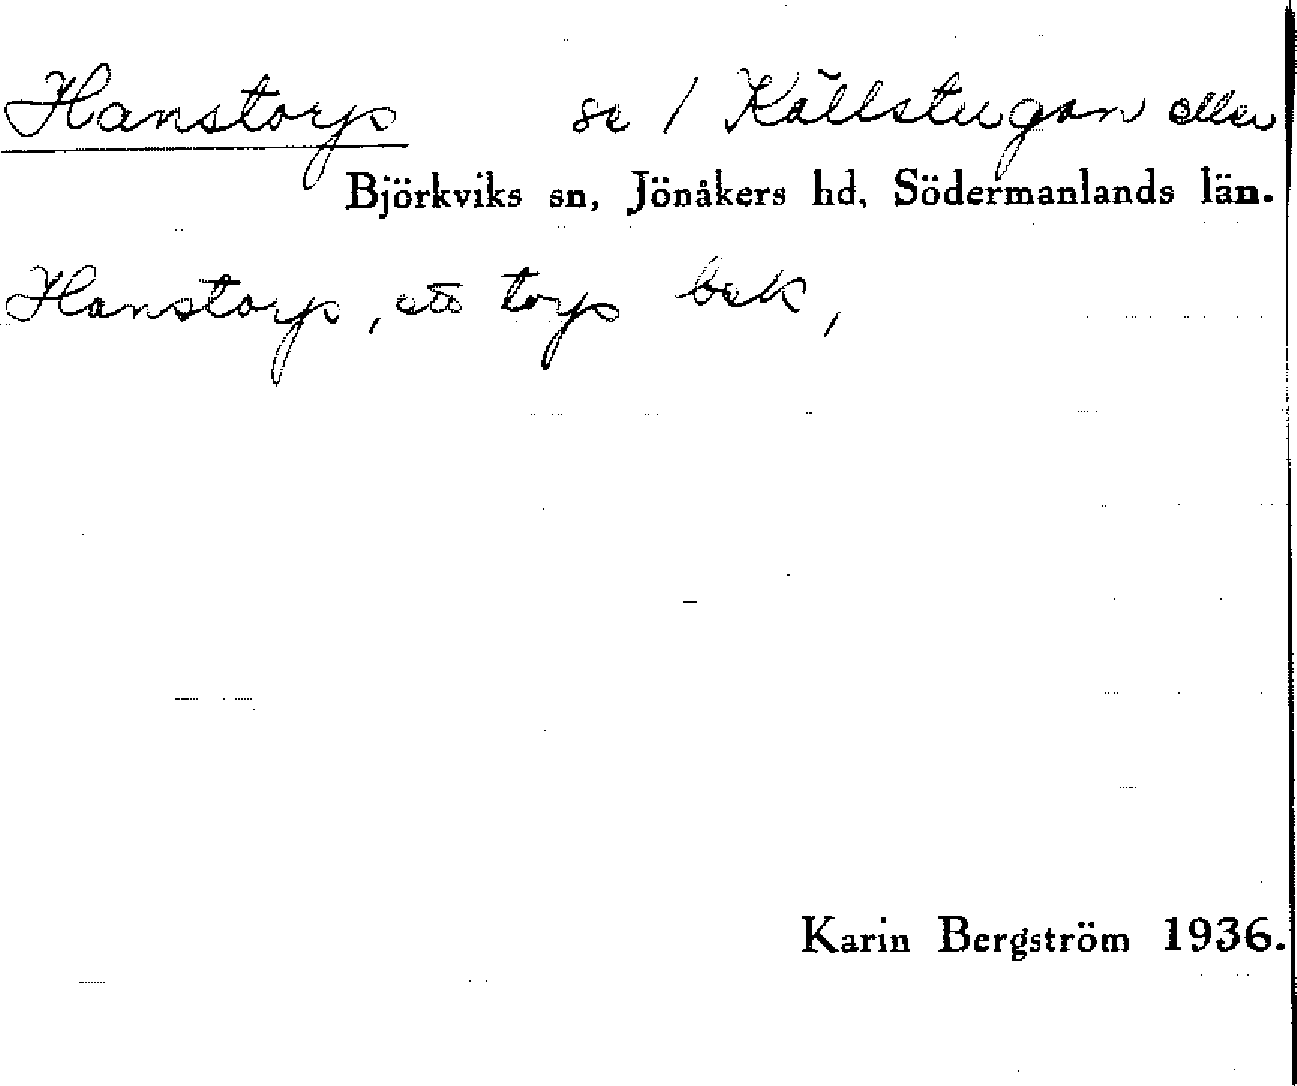 Hanstorp se / Källstugan eller
Björkviks sn, Jönåkers hd, Södermanlands län.
Hanstorp, ett torp bek,
Karin Bergström 1936.